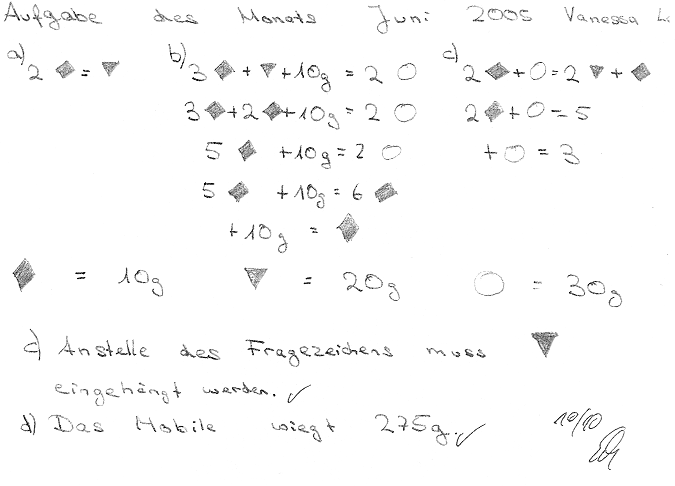 Aufgabe des Monats Juni 2005 Vanessa L.
a) 2 ◆ = ▼
b) 3 ◆ + ▼ + 10g = 2 ○
3 ◆ + 2 ◆ + 10g = 2 ○
5 ◆ + 10g = 2 ○
5 ◆ + 10g = 6 ◆
+ 10g = ◆
c) 2 ◆ + ○ = 2 ▼ + ◆
2 ◆ + ○ = 5
+ ○ = 3
◆ = 10g ▼ = 20g ○ = 30g
c) Anstelle des Fragezeichens muss ▼
eingehängt werden. ✓
d) Das Mobile wiegt 275g. ✓
10/10